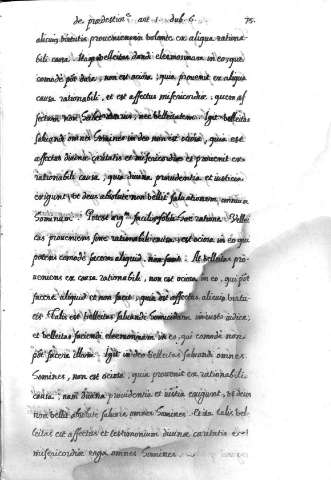 de prædestin.e art. 1. dub. 6. 75.
alicuius virtutis proveniens in volente ex aliqua rationa-
bili causa. velleitas dandi eleemosinam in eo, qui
comodè pōt dare, non est ociosa; quia provenit ex aliqua
causa rationabili, et est affectus misericordiæ, quem af
fectum non nec velleitatem. Igit velleitas
saluandi omnes homines in deo non est ociosa, quia est
affectus diuinæ caritatis et misericordiæ et prouenit ex
rationabili causa, quia diuina prouidentia et iustitia
exigunt, ut deus absolutè non uellit saluationem omnium
hominum. Potest ratione. Vellei
tas proueniens sine rationabili causa, est ociosa in eo qui
potens comodè facere aliquid, non facit. At velleitas pro-
ueniens ex causa rationabili, non est ociosa in eo, qui pōt
facere aliquid et non facit, quia est affectus alicuius virtu-
tis. Talis est velleitas saluandi homicidam in iusto iudice,
et velleitas faciendi eleemosinam in eo, qui comodè non
pōt facere illam. Igit in deo velleitas saluandi omnes
homines, non est ociosa; quia prouenit ex rationabili
causa; nam diuina prouidentia et iustitia exigunt, ut deus
non vellit absolutè saluare omnes homines. et ita talis vel-
leitas est affectus et testimonium diuinæ caritatis et
misericordiæ erga omnes homines.